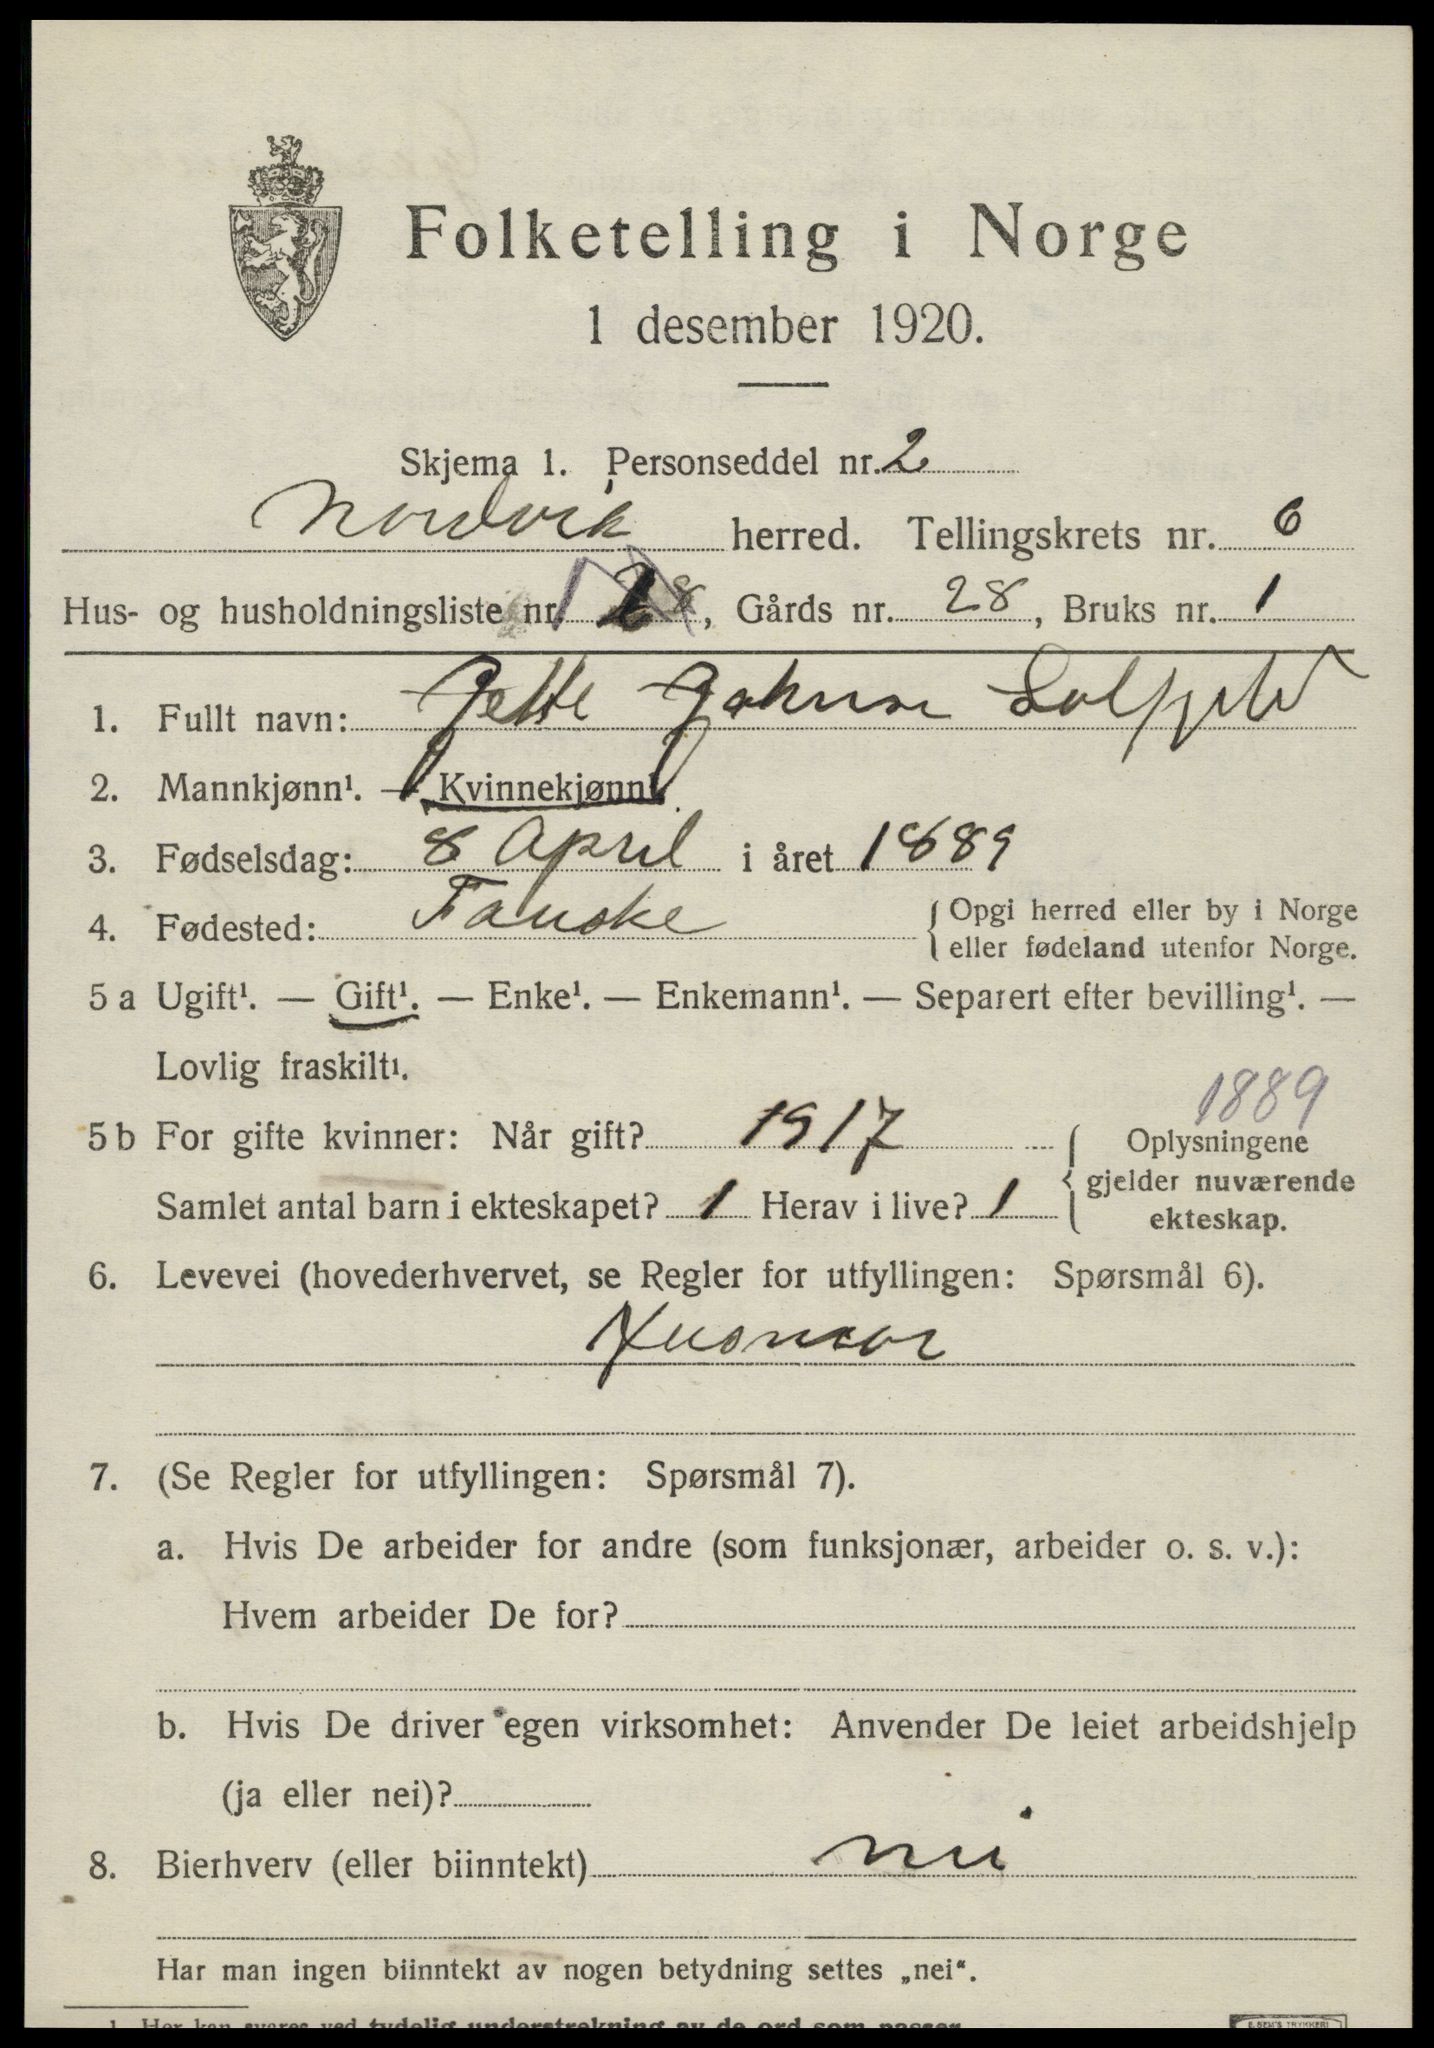 Folketelling i Norge
1 desember 1920.
Skjema 1. Personseddel nr. 2
Nordvik herred. Tellingskrets nr. 6
Hus- og husholdningsliste nr. , Gårds nr. 28, Bruks nr. 1
1. Fullt navn: Jette Johnsen
2. Mannkjønn¹. — Kvinnekjønn¹.
3. Fødselsdag: 8 April i året 1889
4. Fødested: Fauske { Opgi herred eller by i Norge
eller fødeland utenfor Norge.
5 a Ugift¹. — Gift¹. — Enke¹. — Enkemann¹. — Separert efter bevilling¹. —
Lovlig fraskilt¹.
1889
5 b For gifte kvinner: Når gift? 1917 { Oplysningene
gjelder nuværende
Samlet antal barn i ekteskapet? 1 Herav i live? 1
ekteskap.
6. Levevei (hovederhvervet, se Regler for utfyllingen: Spørsmål 6).
Husmor
7. (Se Regler for utfyllingen: Spørsmål 7).
a. Hvis De arbeider for andre (som funksjonær, arbeider o. s. v.):
Hvem arbeider De for?
b. Hvis De driver egen virksomhet: Anvender De leiet arbeidshjelp
(ja eller nei)?
8. Bierhverv (eller biinntekt) nei
Har man ingen biinntekt av nogen betydning settes „nei“.
1 Her kan svares ved tydelig understrekning av de ord som passer.